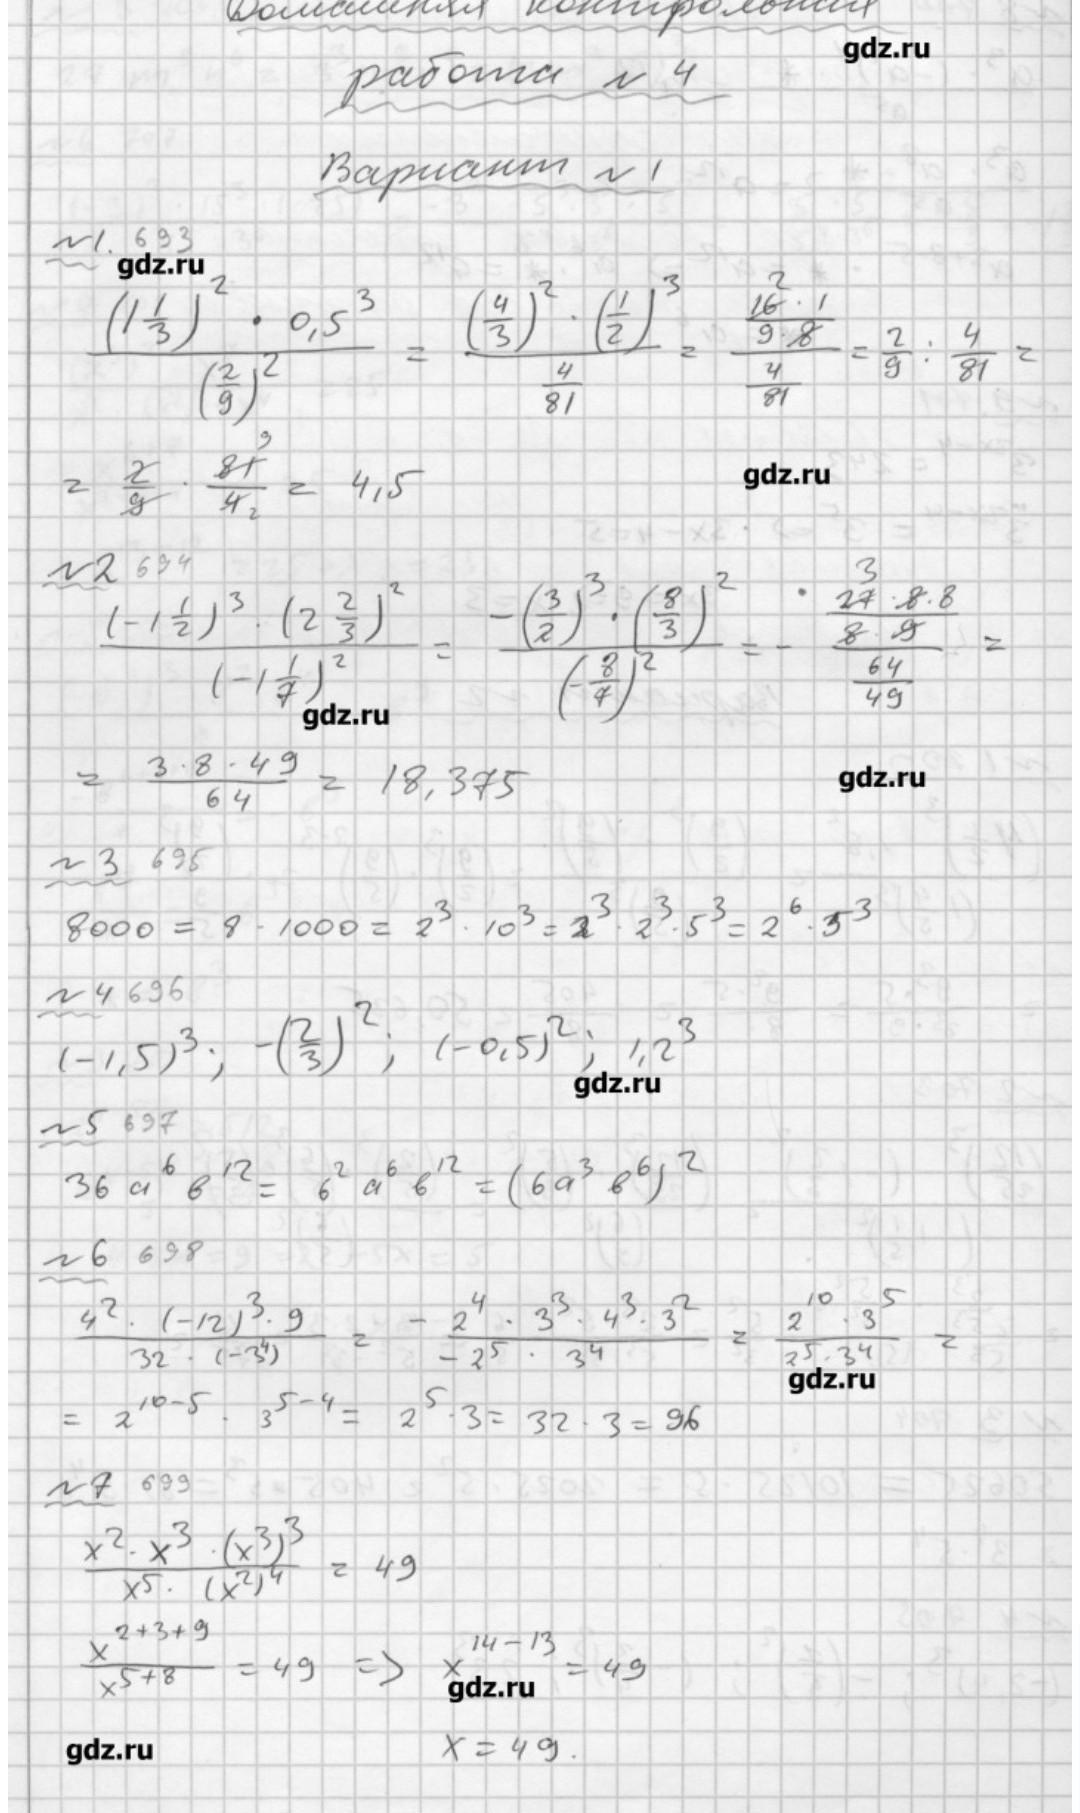 Домашняя контрольная
gdz.ru
работа № 4
Вариант № 1
№1. 693
gdz.ru
(1 1/3)^2 · 0,5^3 / (2/9)^2 = (4/3)^2 · (1/2)^3 / (4/81) = (16 · 1 / 9 · 8) / (4/81) = 2/9 : 4/81 =
= 2/9 · 81/4 = 4,5
gdz.ru
№2 694
(-1 1/2)^3 · (2 2/3)^2 / (-1 1/7)^2 = -(3/2)^3 · (8/3)^2 / (-8/7)^2 = - (27 · 8 · 8 / 8 · 9) / (64/49) =
gdz.ru
= 3 · 8 · 49 / 64 = 18,375
gdz.ru
№3 695
8000 = 8 · 1000 = 2^3 · 10^3 = 2^3 · 2^3 · 5^3 = 2^6 · 5^3
№4 696
(-1,5)^3; -(2/3)^2; (-0,5)^2; 1,2^3
gdz.ru
№5 697
36 a^6 b^12 = 6^2 a^6 b^12 = (6a^3 b^6)^2
№6 698
4^2 · (-12)^3 · 9 / 32 · (-3^4) = - 2^4 · 3^3 · 4^3 · 3^2 / -2^5 · 3^4 = 2^10 · 3^5 / 2^5 · 3^4 =
gdz.ru
= 2^10-5 · 3^5-4 = 2^5 · 3 = 32 · 3 = 96
№7 699
x^2 · x^3 · (x^3)^3 / x^5 · (x^2)^4 = 49
x^2+3+9 / x^5+8 = 49 => x^14-13 = 49
gdz.ru
gdz.ru
x = 49.